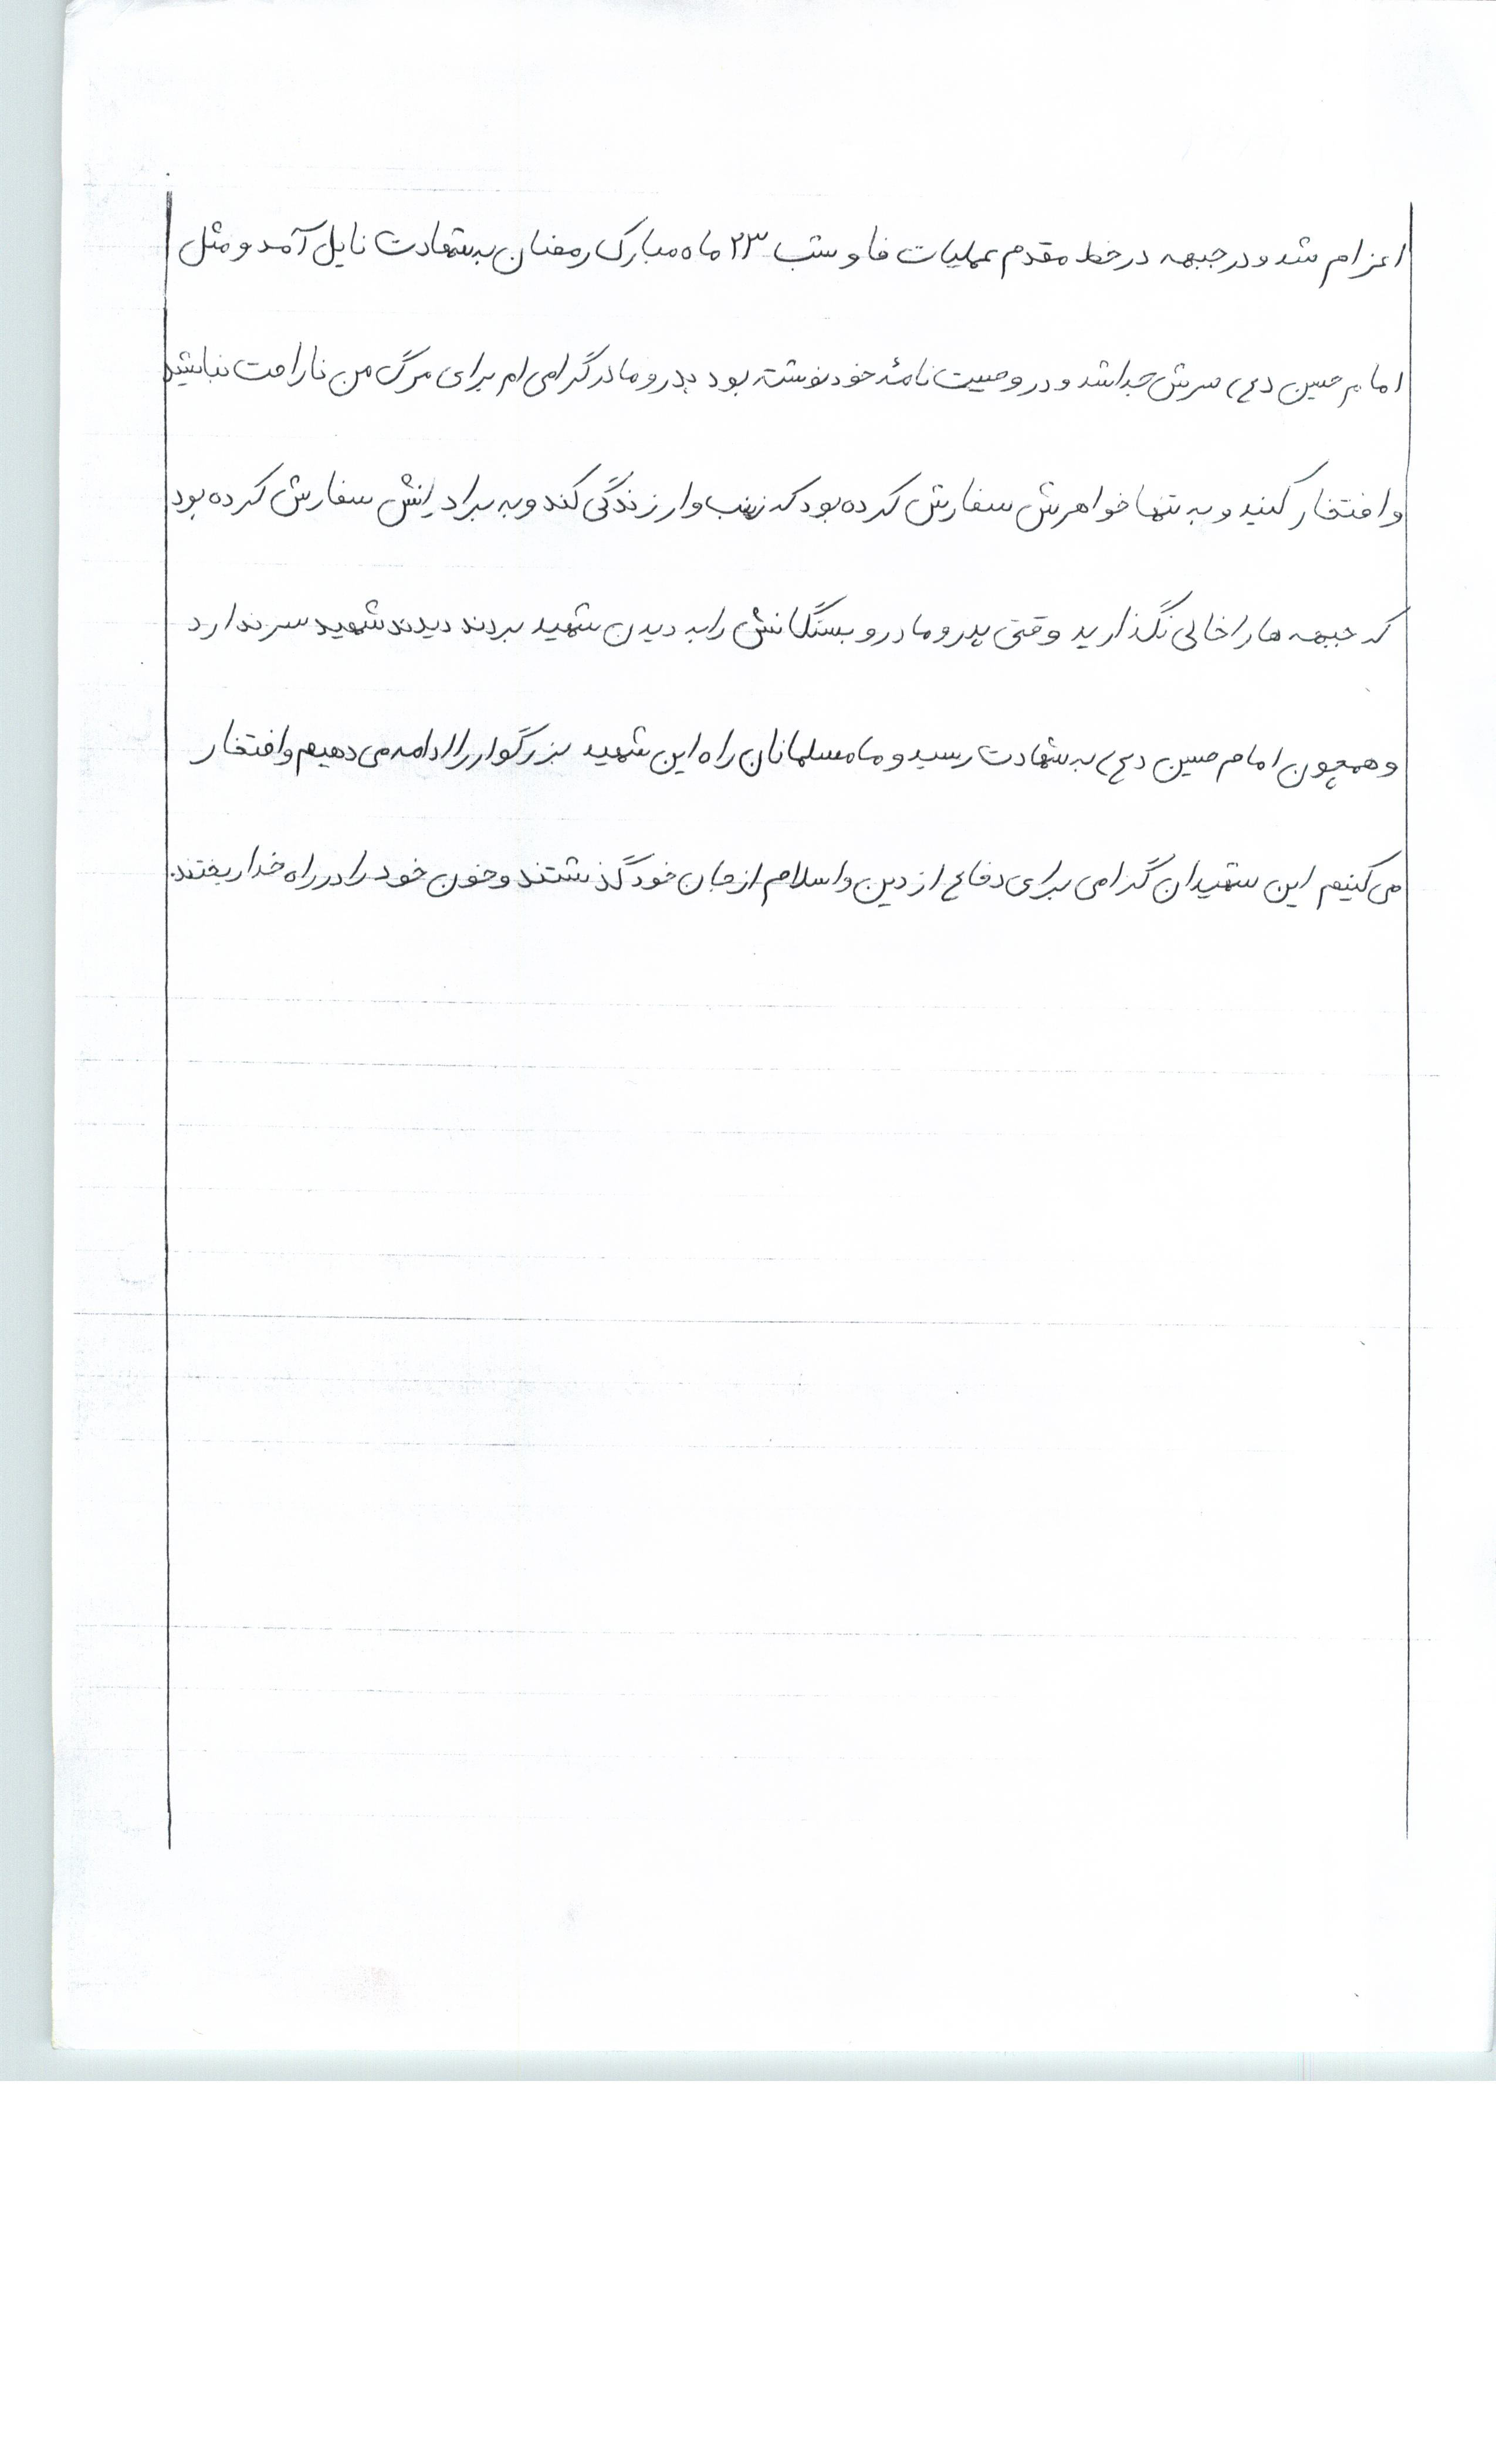 اعزام شد و در جبهه در خط مقدم عملیات فاو شب ۲۳ ماه مبارک رمضان به شهادت نایل آمد و مثل
امام حسین (ع) سرش جدا شد و در وصیت نامهٔ خود نوشته بود پدر و مادر گرامی ام برای مرگ من ناراحت نباشید
و افتخار کنید و به تنها خواهرش سفارش کرده بود که زینب وار زندگی کند و به برادرانش سفارش کرده بود
که جبهه ها را خالی نگذارید وقتی پدر و مادر و بستگانش را به دیدن شهید بردند دیدند شهید سر ندارد
و همچون امام حسین (ع) به شهادت رسید و ما مسلمانان راه این شهید بزرگوار را ادامه می دهیم و افتخار
می کنیم این شهیدان گرامی برای دفاع از دین و اسلام از جان خود گذشتند و خون خود را در راه خدا ریختند.